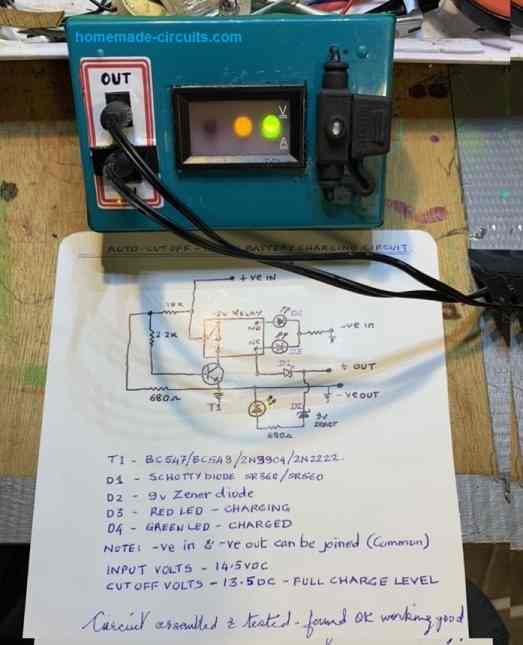 homemade-circuits.com
OUT
V
A
AUTO-CUT OFF - BATTERY CHARGING CIRCUIT
+VE IN
10K
RELAY
D4
NO
-VE IN
2.2K
N/C
D3
D1
+ OUT
-VE OUT
680Ω
T1
D2
9V
680Ω
T1 - BC547/BC548/2N3904/2N2222
D1 - SCHOTTY DIODE SR360/SR560
D2 - 9v Zener diode
D3 - RED LED - CHARGING
D4 - GREEN LED - CHARGED
NOTE: -ve in & -ve out can be joined (Common)
INPUT VOLTS - 14.5VDC
CUT OFF VOLTS - 13.5 DC - FULL CHARGE LEVEL
Circuit assembled & tested - found OK working good